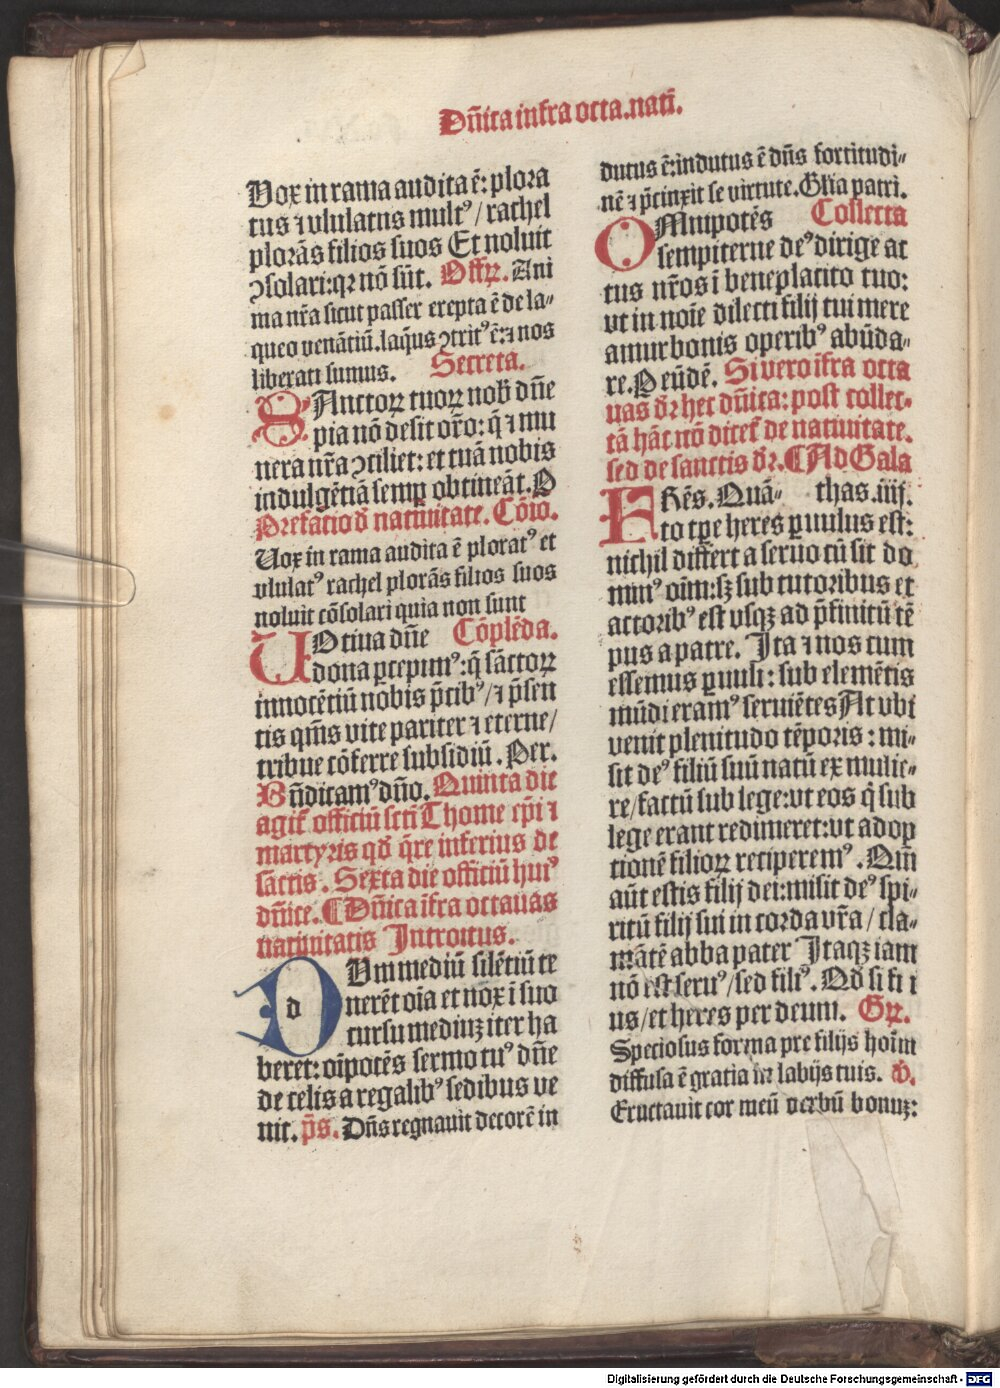 Dn̄ica infra octa.nati̅.
Vox in rama audita ē: plora
tus ⁊ vlulatus mult⁹ / rachel
plorās filios suos Et noluit
ↄsolari:qꝛ nō sūt. Offꝝ. Ani
ma nr̄a sicut passer erepta ē de la-
queo venātiū.laq̄us ↄtrit⁹ ē:⁊ nos
liberati sumus. Secreta.
SAnctoꝝ tuoꝝ nob̄ dn̄e
pia nō desit or̄o: q̄ ⁊ mu
nera nr̄a ↄciliet: et tuā nobis
indulgētiā semꝑ obtineāt. P
Prefatio d̄ natiuitate. Cōio.
Vox in rama audita ē plorat⁹ et
vlulat⁹ rachel plorās filios suos
noluit cōsolari quia non sunt
VOtiua dn̄e Cōplēda.
dona ꝑcepim⁹:q̄ sāctoꝝ
innocētiū nobis p̄cib⁹/⁊ p̄sen
tis qm̄s vite pariter ⁊ eterne/
tribue cōferre subsidiū. Per.
Bn̄dicam⁹ dn̄o. Quinta die
agit̄ officiū scti̅ Thome ep̄i ⁊
martyris qd̄ q̄re inferius de
sāctis. Sexta die officiū hui⁹
dn̄ice. ¶ Dn̄ica īfra octauas
natiuitatis Introitus.
d
DVm mediū silētiū te
nerēt oīa et nox i suo
cursu mediuꝫ iter ha
beret: oīpotēs sermo tu⁹ dn̄e
de celis a regalib⁹ sedibus ve
nit. p̄s. Dn̄s regnauit decorē in
dutus ē:indutus ē dn̄s fortitudi-
nē ⁊ p̄cinxit se virtute. Gl̄ia patri.
OMnipotēs Collecta
sempiterne de⁹ dirige ac
tus nr̄os ī beneplacito tuo:
vt in noīe dilecti filij tui mere
amur bonis operib⁹ abūda-
re. P eūdē. Si vero īfra octa
uas d̄r hec dn̄ica: post collec-
tā hāc nō dicet̄ de natiuitate.
sed de sanctis d̄r. ¶ Ad Gala
FRēs. Quā- thas .iiij.
to tꝑe heres ꝑuulus est:
nichil differt a seruo cū sit do
min⁹ oīm:sꝫ sub tutoribus et
actorib⁹ est vsqꝫ ad p̄finitū tē
pus a patre. Ita ⁊ nos cum
essemus ꝑuuli: sub elemētis
mūdi eram⁹ seruiētes At vbi
venit plenitudo tēporis: mi-
sit de⁹ filiū suū natū ex mulie-
re/factū sub lege:vt eos q̄ sub
lege erant redimeret:vt adop
tionē filioꝝ reciperem⁹. Qm̄
aūt estis filij dei:misit de⁹ spi-
ritū filij sui in corda vr̄a / cla-
mātē abba pater Itaqꝫ iam
nō est seru⁹/sed fili⁹. Qd̄ si fi li
us/et heres per deum. Gꝝ.
Speciosus forma pre filijs hoīm
diffusa ē gratia in labijs tuis. v̄.
Eructauit cor meū verbū bonuꝫ:
Digitalisierung gefördert durch die Deutsche Forschungsgemeinschaft - DFG